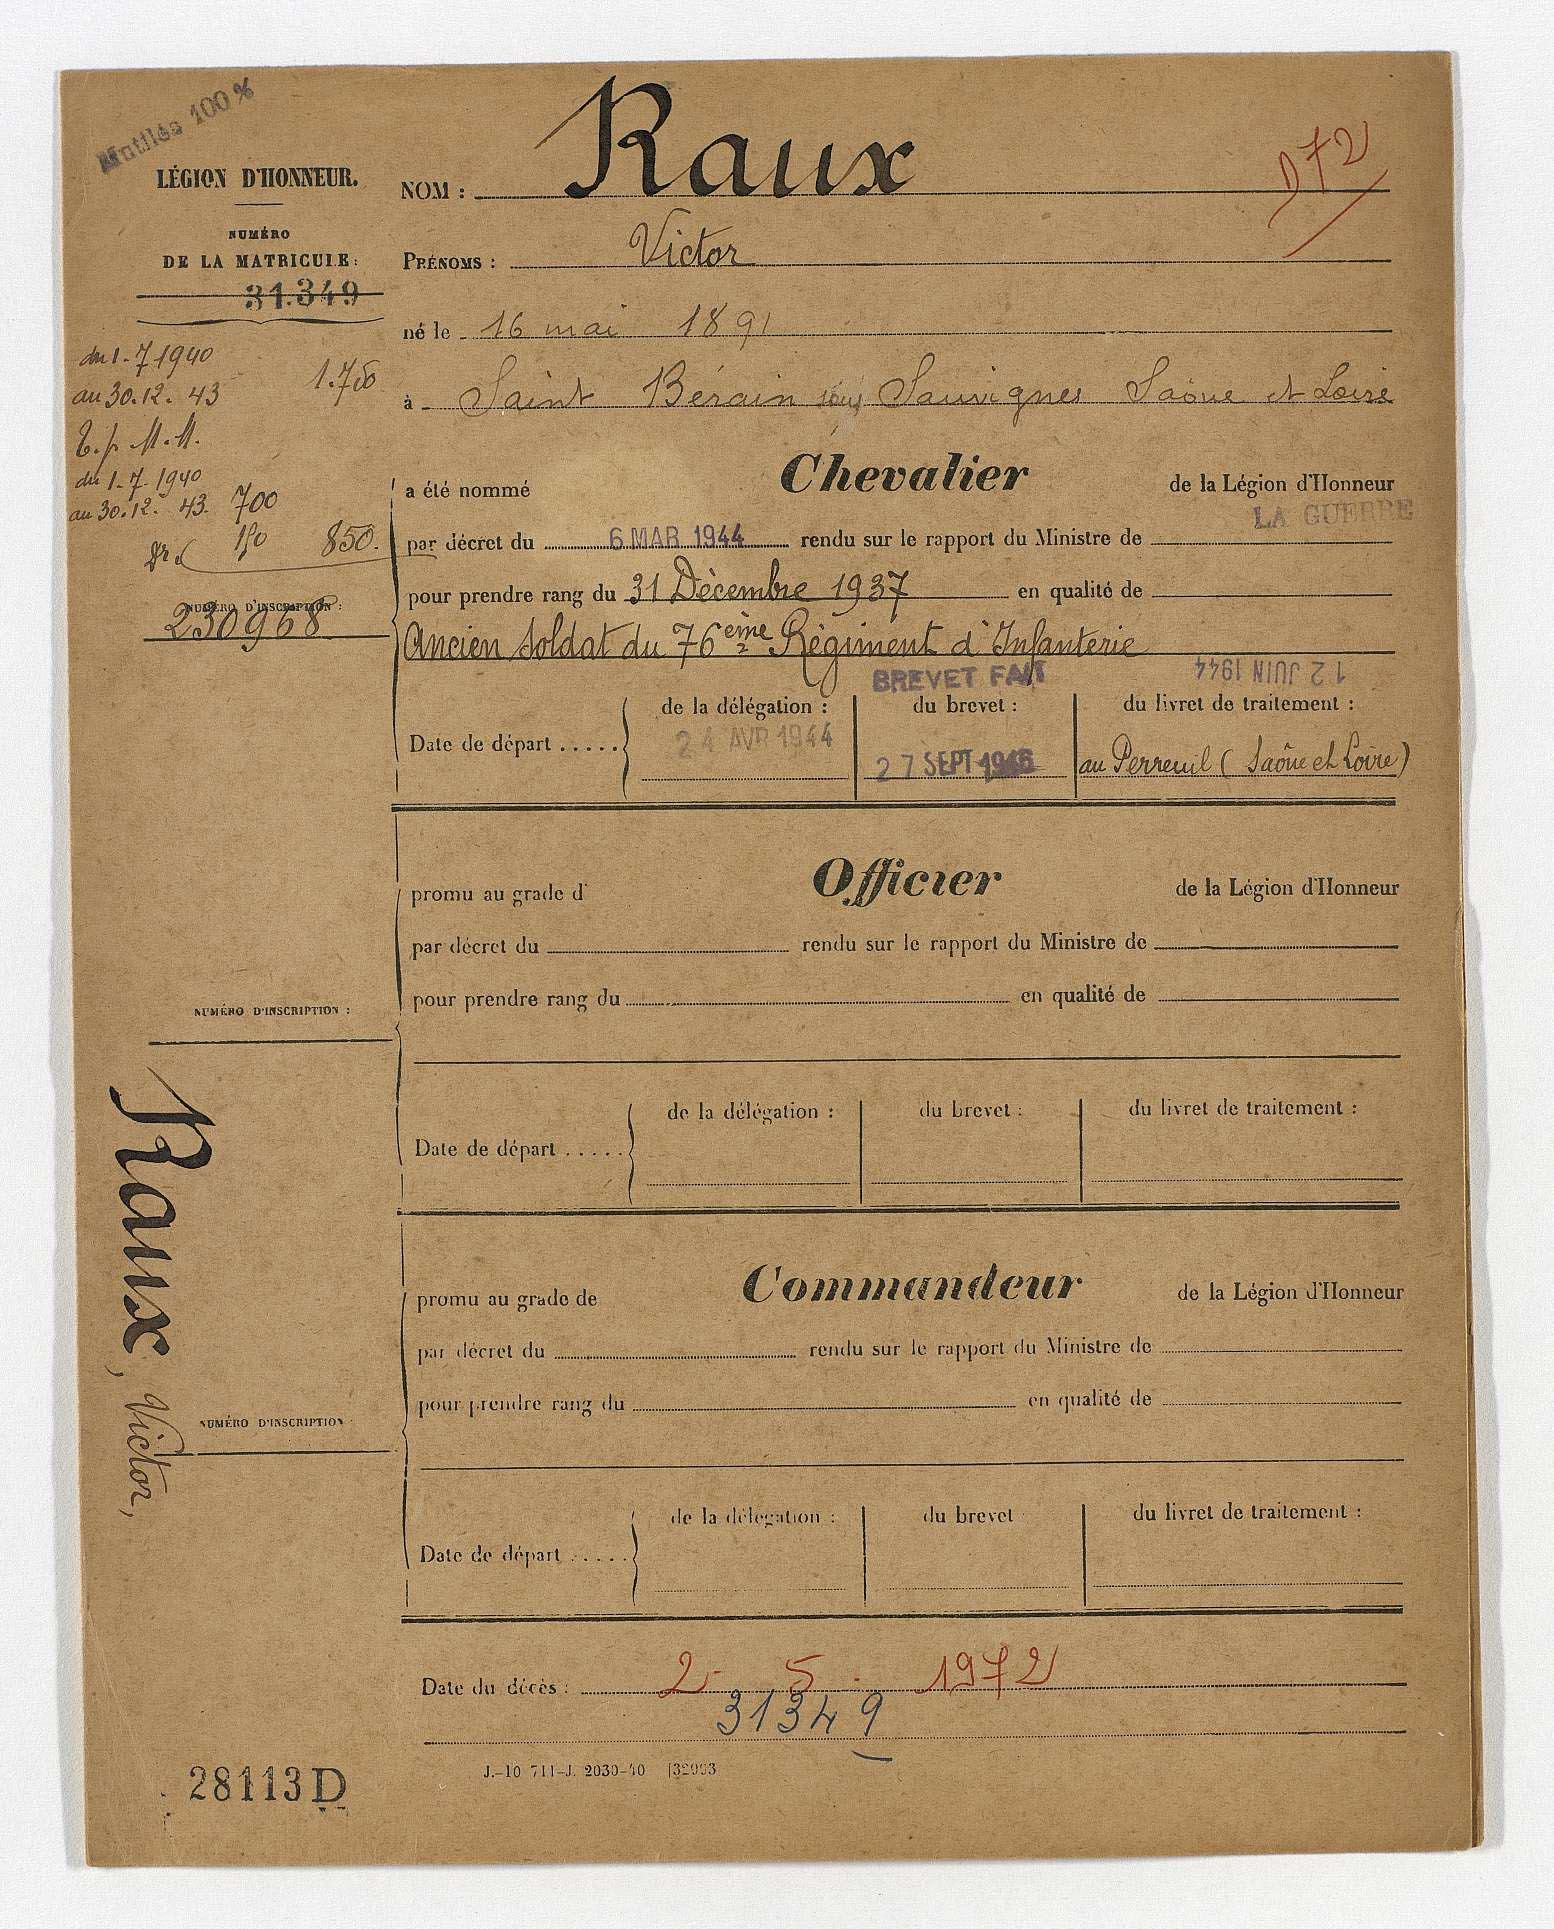 Mutilés 100 %
LÉGION D'HONNEUR.
NUMÉRO
DE LA MATRICULE:
31.349
NOM : Raux
D72
PRÉNOMS : Victor
né le 16 mai 1891
à Saint Bérain sous Sauvignes Saône et Loire
du 1-7 1940
au 30.12. 43 1.750
T.p M.M.
du 1-7-1940
au 30.12. 43. 700
150 850.
NUMÉRO D'INSCRIPTION :
230968
a été nommé Chevalier de la Légion d'Honneur
par décret du 6 MAR 1944 rendu sur le rapport du Ministre de LA GUERRE
pour prendre rang du 31 Décembre 1937 en qualité de
Ancien soldat du 76ème Régiment d'Infanterie
BREVET FAIT 12 JUIN 1944
Date de départ ..... de la délégation : du brevet : du livret de traitement :
24 AVR 1944 27 SEPT 1946 au Perreuil (Saône et Loire)
promu au grade d' Officier de la Légion d'Honneur
par décret du rendu sur le rapport du Ministre de
pour prendre rang du en qualité de
NUMÉRO D'INSCRIPTION :
Date de départ ..... de la délégation : du brevet : du livret de traitement :
Raux, Victor,
promu au grade de Commandeur de la Légion d'Honneur
par décret du rendu sur le rapport du Ministre de
pour prendre rang du en qualité de
NUMÉRO D'INSCRIPTION
Date de départ ..... de la délégation : du brevet du livret de traitement :
Date du décès : 2 - 5 - 1972
31349
J.-10 711-J. 2030-40
28113 D